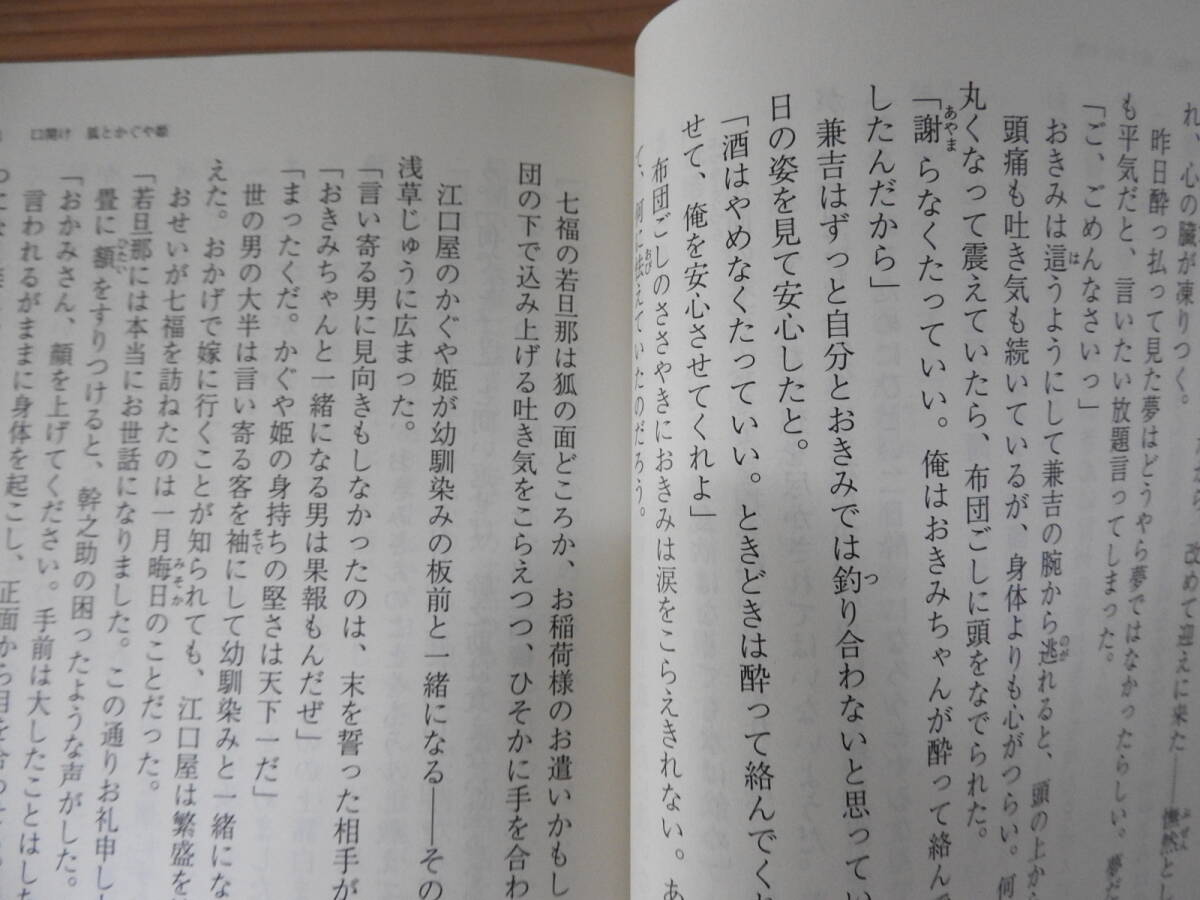 れ、心の臓が凍りつく。
改めて迎えに来た――憮然とし
昨日酔っ払って見た夢はどうやら夢ではなかったらしい。夢だ
も平気だと、言いたい放題言ってしまった。
「ご、ごめんなさいっ」
おきみは這うようにして兼吉の腕から逃れると、頭の上から
頭痛も吐き気も続いているが、身体よりも心がつらい。何
丸くなって震えていたら、布団ごしに頭をなでられた。
「謝らなくたっていい。俺はおきみちゃんが酔って絡んで
したんだから」
兼吉はずっと自分とおきみでは釣り合わないと思ってい
日の姿を見て安心したと。
「酒はやめなくたっていい。ときどきは酔って絡んでくれ
せて、俺を安心させてくれよ」
布団ごしのささやきにおきみは涙をこらえきれない。あ
て、何に怯えていたのだろう。
口開け 狐とかぐや姫
七福の若旦那は狐の面どころか、お稲荷様のお遣いかもし
団の下で込み上げる吐き気をこらえつつ、ひそかに手を合わ
江口屋のかぐや姫が幼馴染みの板前と一緒になる――その
浅草じゅうに広まった。
「言い寄る男に見向きもしなかったのは、末を誓った相手が
「おきみちゃんと一緒になる男は果報もんだぜ」
「まったくだ。かぐや姫の身持ちの堅さは天下一だ」
世の男の大半は言い寄る客を袖にして幼馴染みと一緒にな
えた。おかげで嫁に行くことが知られても、江口屋は繁盛を
おせいが七福を訪ねたのは一月晦日のことだった。
「若旦那には本当にお世話になりました。この通りお礼申し
畳に額をすりつけると、幹之助の困ったような声がした。
「おかみさん、顔を上げてください。手前は大したことはした
言われるがままに身体を起こし、正面から目を合わせる